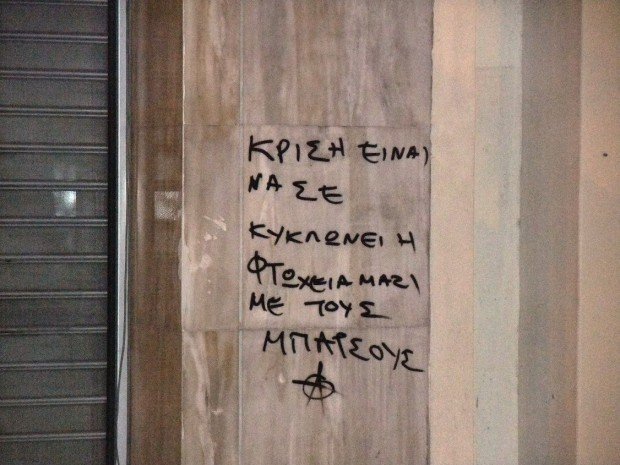 ΚΡΙΣΗ ΕΙΝΑΙ
ΝΑ ΣΕ
ΚΥΚΛΩΝΕΙ Η
ΦΤΩΧΕΙΑ ΜΑΖΙ
ΜΕ ΤΟΥΣ
ΜΠΑΤΣΟΥΣ